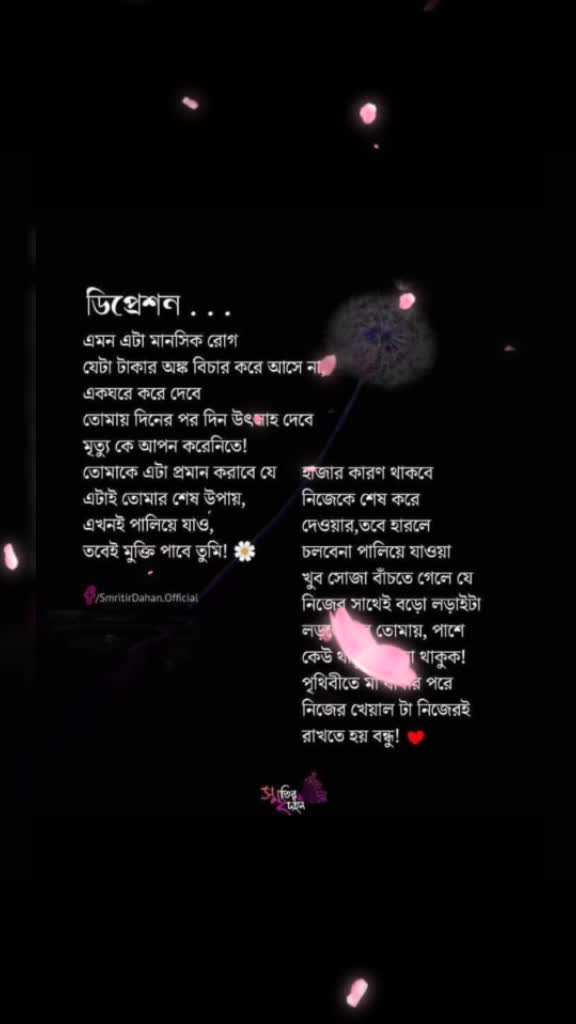 ডিপ্রেশন . . .
এমন এটা মানসিক রোগ
যেটা টাকার অঙ্ক বিচার করে আসে না,
একঘরে করে দেবে
তোমায় দিনের পর দিন উৎসাহ দেবে
মৃত্যু কে আপন করেনিতে!
তোমাকে এটা প্রমান করাবে যে
এটাই তোমার শেষ উপায়,
এখনই পালিয়ে যাও,
তবেই মুক্তি পাবে তুমি! 🌼
/SmritirDahan.Official
হাজার কারণ থাকবে
নিজেকে শেষ করে
দেওয়ার,তবে হারলে
চলবেনা পালিয়ে যাওয়া
খুব সোজা বাঁচতে গেলে যে
নিজের সাথেই বড়ো লড়াইটা
তোমায়, পাশে
কেউ থাকুক!
পৃথিবীতে মা বাবার পরে
নিজের খেয়াল টা নিজেরই
রাখতে হয় বন্ধু! ❤️
স্মৃতির
দহন